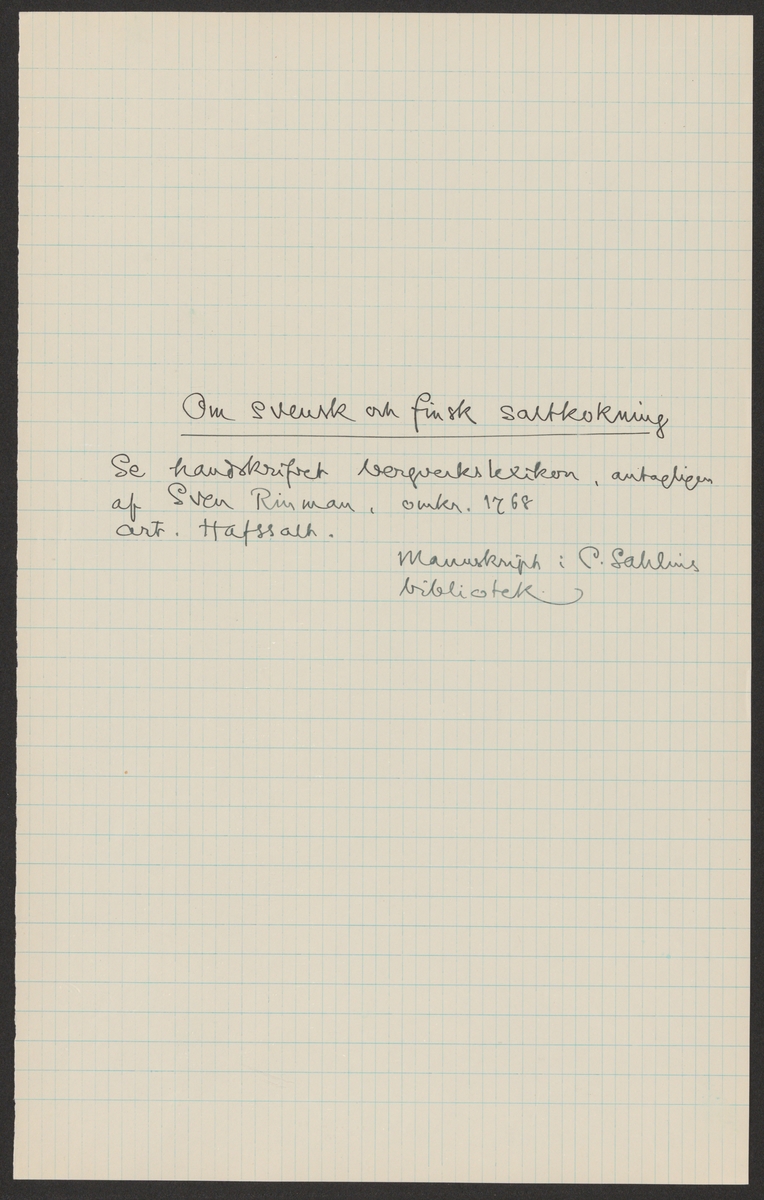 Om svensk och finsk saltkokning
Se handskrifvet bergverkslexikon, antagligen
af Sven Rinman, omkr. 1768
art. Hafssalt.
Manuskript i C. Sahlins
bibliotek.